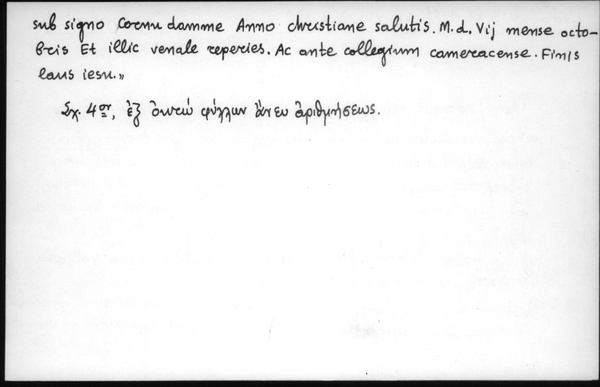 sub signo Cornu damme Anno christiane salutis. M.d. Vij mense octo-
bris Et illic venale reperies. Ac ante collegium cameracense. Finis
laus iesu.,,
Σχ. 4ον, ἐξ ὀκτὼ φύλλων ἄνευ ἀριθμήσεως.